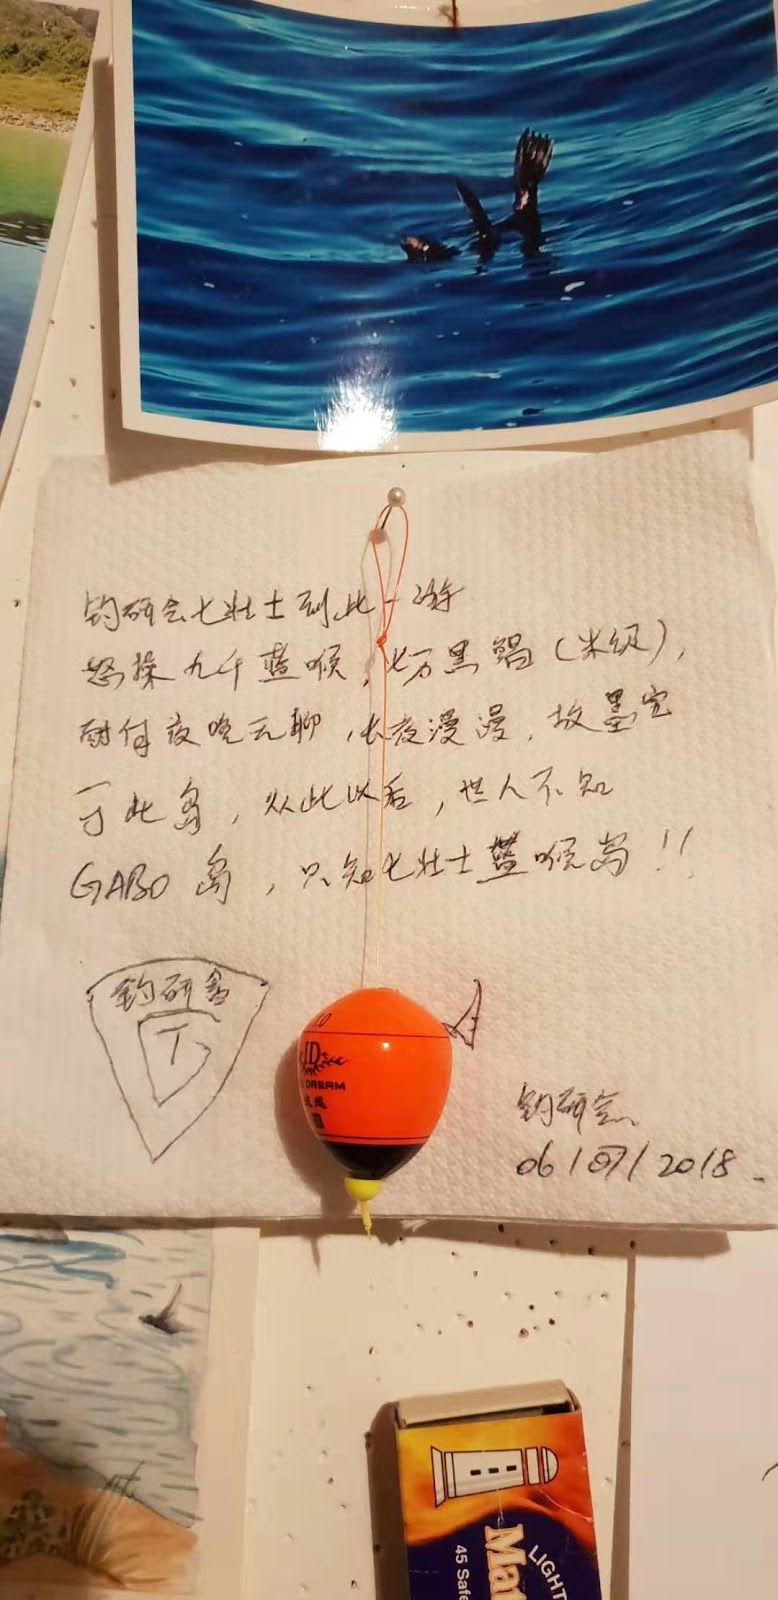 钓研会七壮士到此一游
怒操九千蓝喉，七万黑鲳（米级），
耐何夜晚无聊，长夜漫漫，故墨宝
于此岛，从此以后，世人不知
GABO 岛，只知七壮士蓝喉岛！！
钓研会
T
1.0
ID
DREAM
钓研会
06/07/2018
LIGHT
Mat
45 Safe